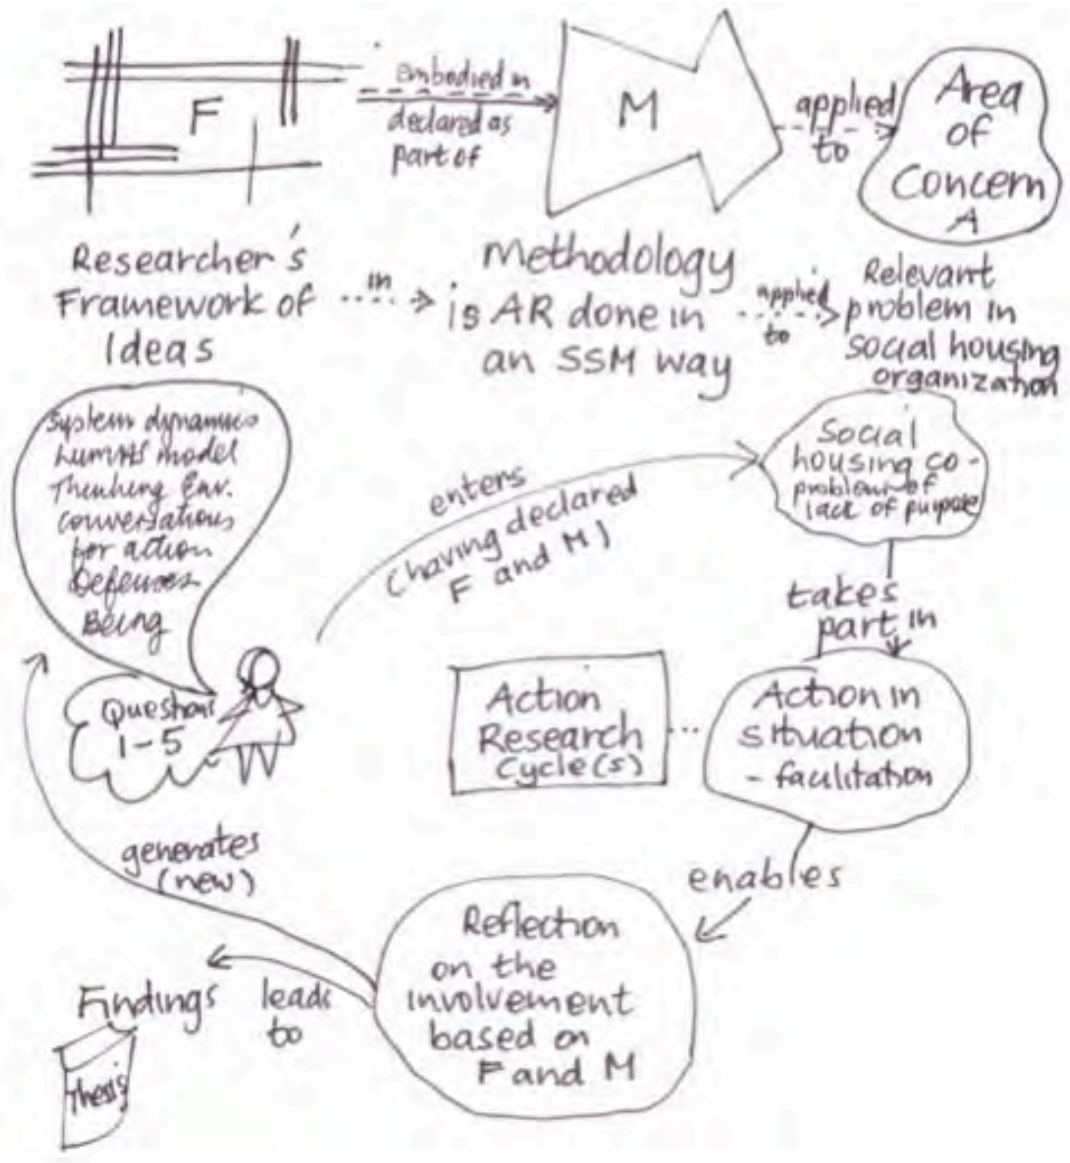 F
embodied in
declared as
part of
M
applied
to
Area
of
Concern
A
Researcher's
Framework of
Ideas
in
Methodology
is AR done in
an SSM way
applied
to
Relevant
problem in
social housing
organization
System dynamics
model
Thinking Env.
conversations
for action
Defences
Being
Questions
1-5
enters
(having declared
F and M)
Social
housing co-
problem of
lack of purpose
takes
part in
Action
Research
Cycle(s)
Action in
situation
- facilitation
enables
Reflection
on the
involvement
based on
F and M
generates
(new)
leads
to
Findings
Thesis